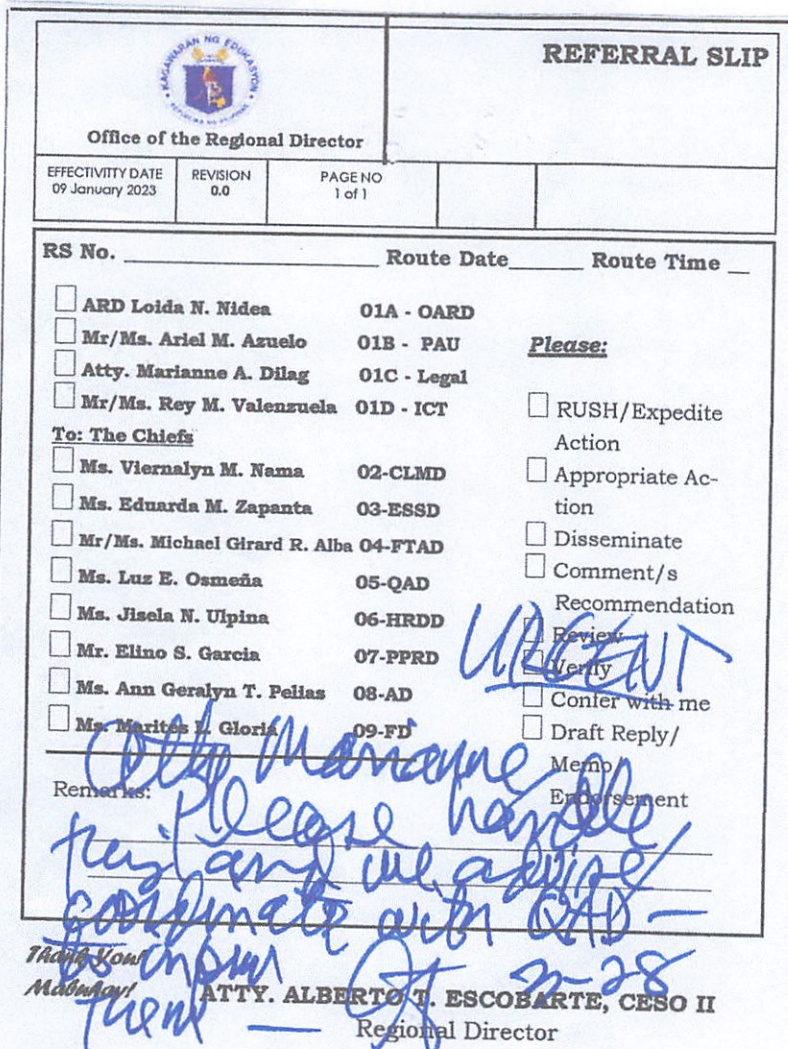 KAGAWARAN NG EDUKASYON
REPUBLIKA NG PILIPINAS
Office of the Regional Director
REFERRAL SLIP
EFFECTIVITTY DATE
09 January 2023
REVISION
0.0
PAGE NO
1 of 1
RS No. Route Date Route Time
ARD Loida N. Nidea 01A - OARD
Mr/Ms. Ariel M. Azuelo 01B - PAU
Atty. Marianne A. Dilag 01C - Legal
Mr/Ms. Rey M. Valenzuela 01D - ICT
To: The Chiefs
Ms. Viernalyn M. Nama 02-CLMD
Ms. Eduarda M. Zapanta 03-ESSD
Mr/Ms. Michael Girard R. Alba 04-FTAD
Ms. Luz E. Osmeña 05-QAD
Ms. Jisela N. Ulpina 06-HRDD
Mr. Elino S. Garcia 07-PPRD
Ms. Ann Geralyn T. Pelias 08-AD
Ms. Marites L. Gloria 09-FD
Please:
RUSH/Expedite
Action
Appropriate Ac-
tion
Disseminate
Comment/s
Recommendation
Review
Verify
Confer with me
Draft Reply/
Memo/
Endorsement
URGENT
Remarks:
Atty Marianne
Please handle
this and
coordinate with QAD —
to inform
them —
2-28
Thank You!
Mabuhay!
ATTY. ALBERTO T. ESCOBARTE, CESO II
Regional Director